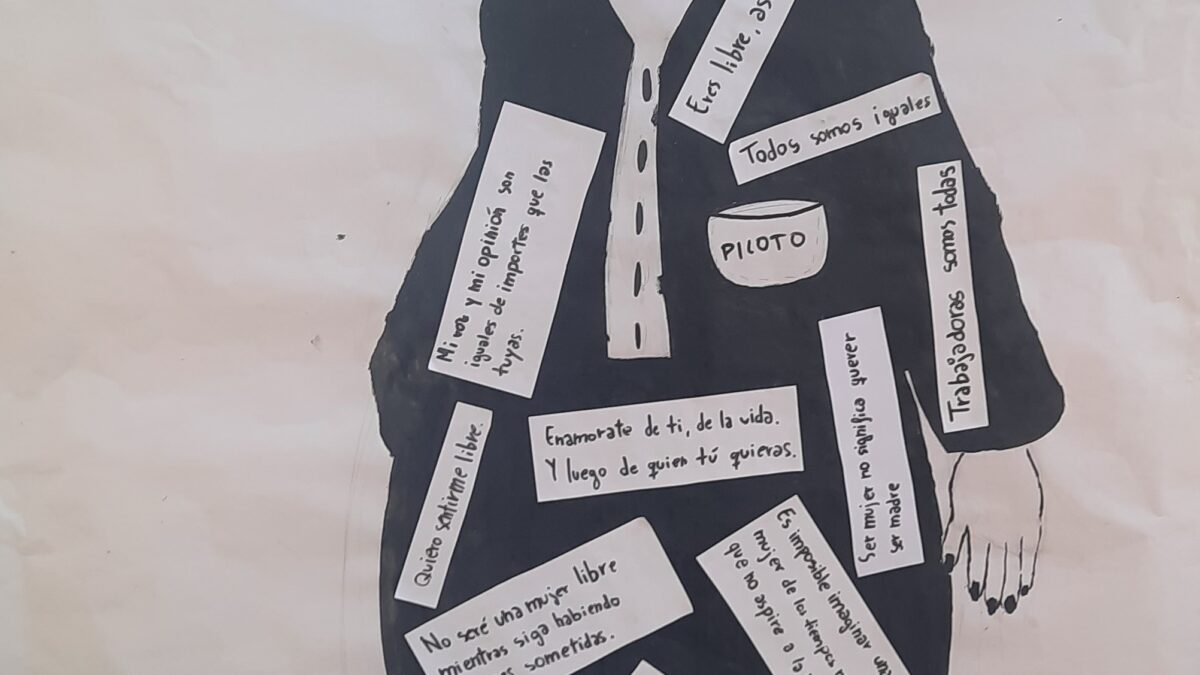 Eres libre, as
Todos somos iguales
Mi voz y mi opinión son
iguales de importes que las
tuyas.
PILOTO
Trabajadoras somos todas
Enamorate de ti, de la vida.
Y luego de quien tú quieras.
Ser mujer no significa querer
ser madre
Quiero sentirme libre.
No seré una mujer libre
mientras siga habiendo
sometidas.
Es imposible imaginar una
mujer de los tiempos
que no aspire a la